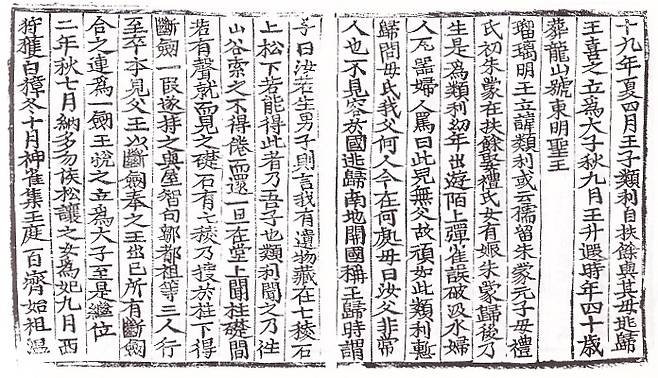 十九年夏四月王子類利自扶餘與其母逃歸
王喜之立爲大子秋九月王升遐時年四十歳
葬龍山號東明聖王
瑠璃明王立諱類利或云孺留朱蒙元子母禮
氏初朱蒙在扶餘娶禮氏女有娠朱蒙歸後乃
生是爲類利幼年出遊陌上彈雀誤破汲水婦
人瓦器婦人罵曰此兒無父故頑如此類利慙
歸問母氏我父何人今在何處母曰汝父非常
人也不見容於國逃歸南地開國稱王歸時謂
予曰汝若生男子則言我有遺物藏在七稜石
上松下若能得此者乃吾子也類利聞之乃往
山谷索之不得倦而還一旦在堂上聞柱礎間
若有聲就而見之礎石有七稜乃搜於柱下得
斷劒一段遂持之與屋智句鄒都祖等三人行
至卒本見父王以斷劒奉之王出己所有斷劒
合之連爲一劒王悅之立爲大子至是繼位
二年秋七月納多勿侯松讓之女爲妃九月西
狩獲白獐冬十月神雀集王庭百濟始祖溫